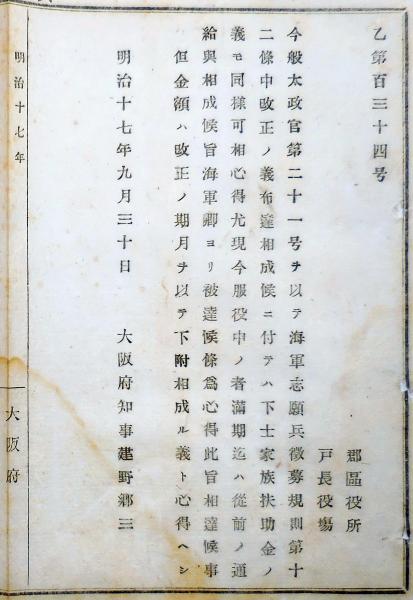 乙第百三十四号
郡區役所
戸長役場
今般太政官第二十一号ヲ以テ海軍志願兵徴募規則第十
二條中改正ノ義布達相成候ニ付テハ下士家族扶助金ノ
義モ同様可相心得尤現今服役中ノ者滿期迄ハ從前ノ通
給與相成候旨海軍卿ヨリ被達候條爲心得此旨相達候事
但金額ハ改正ノ期月ヲ以テ下附相成ル義ト心得ヘシ
明治十七年九月三十日　大阪府知事建野郷三
明治十七年
大阪府